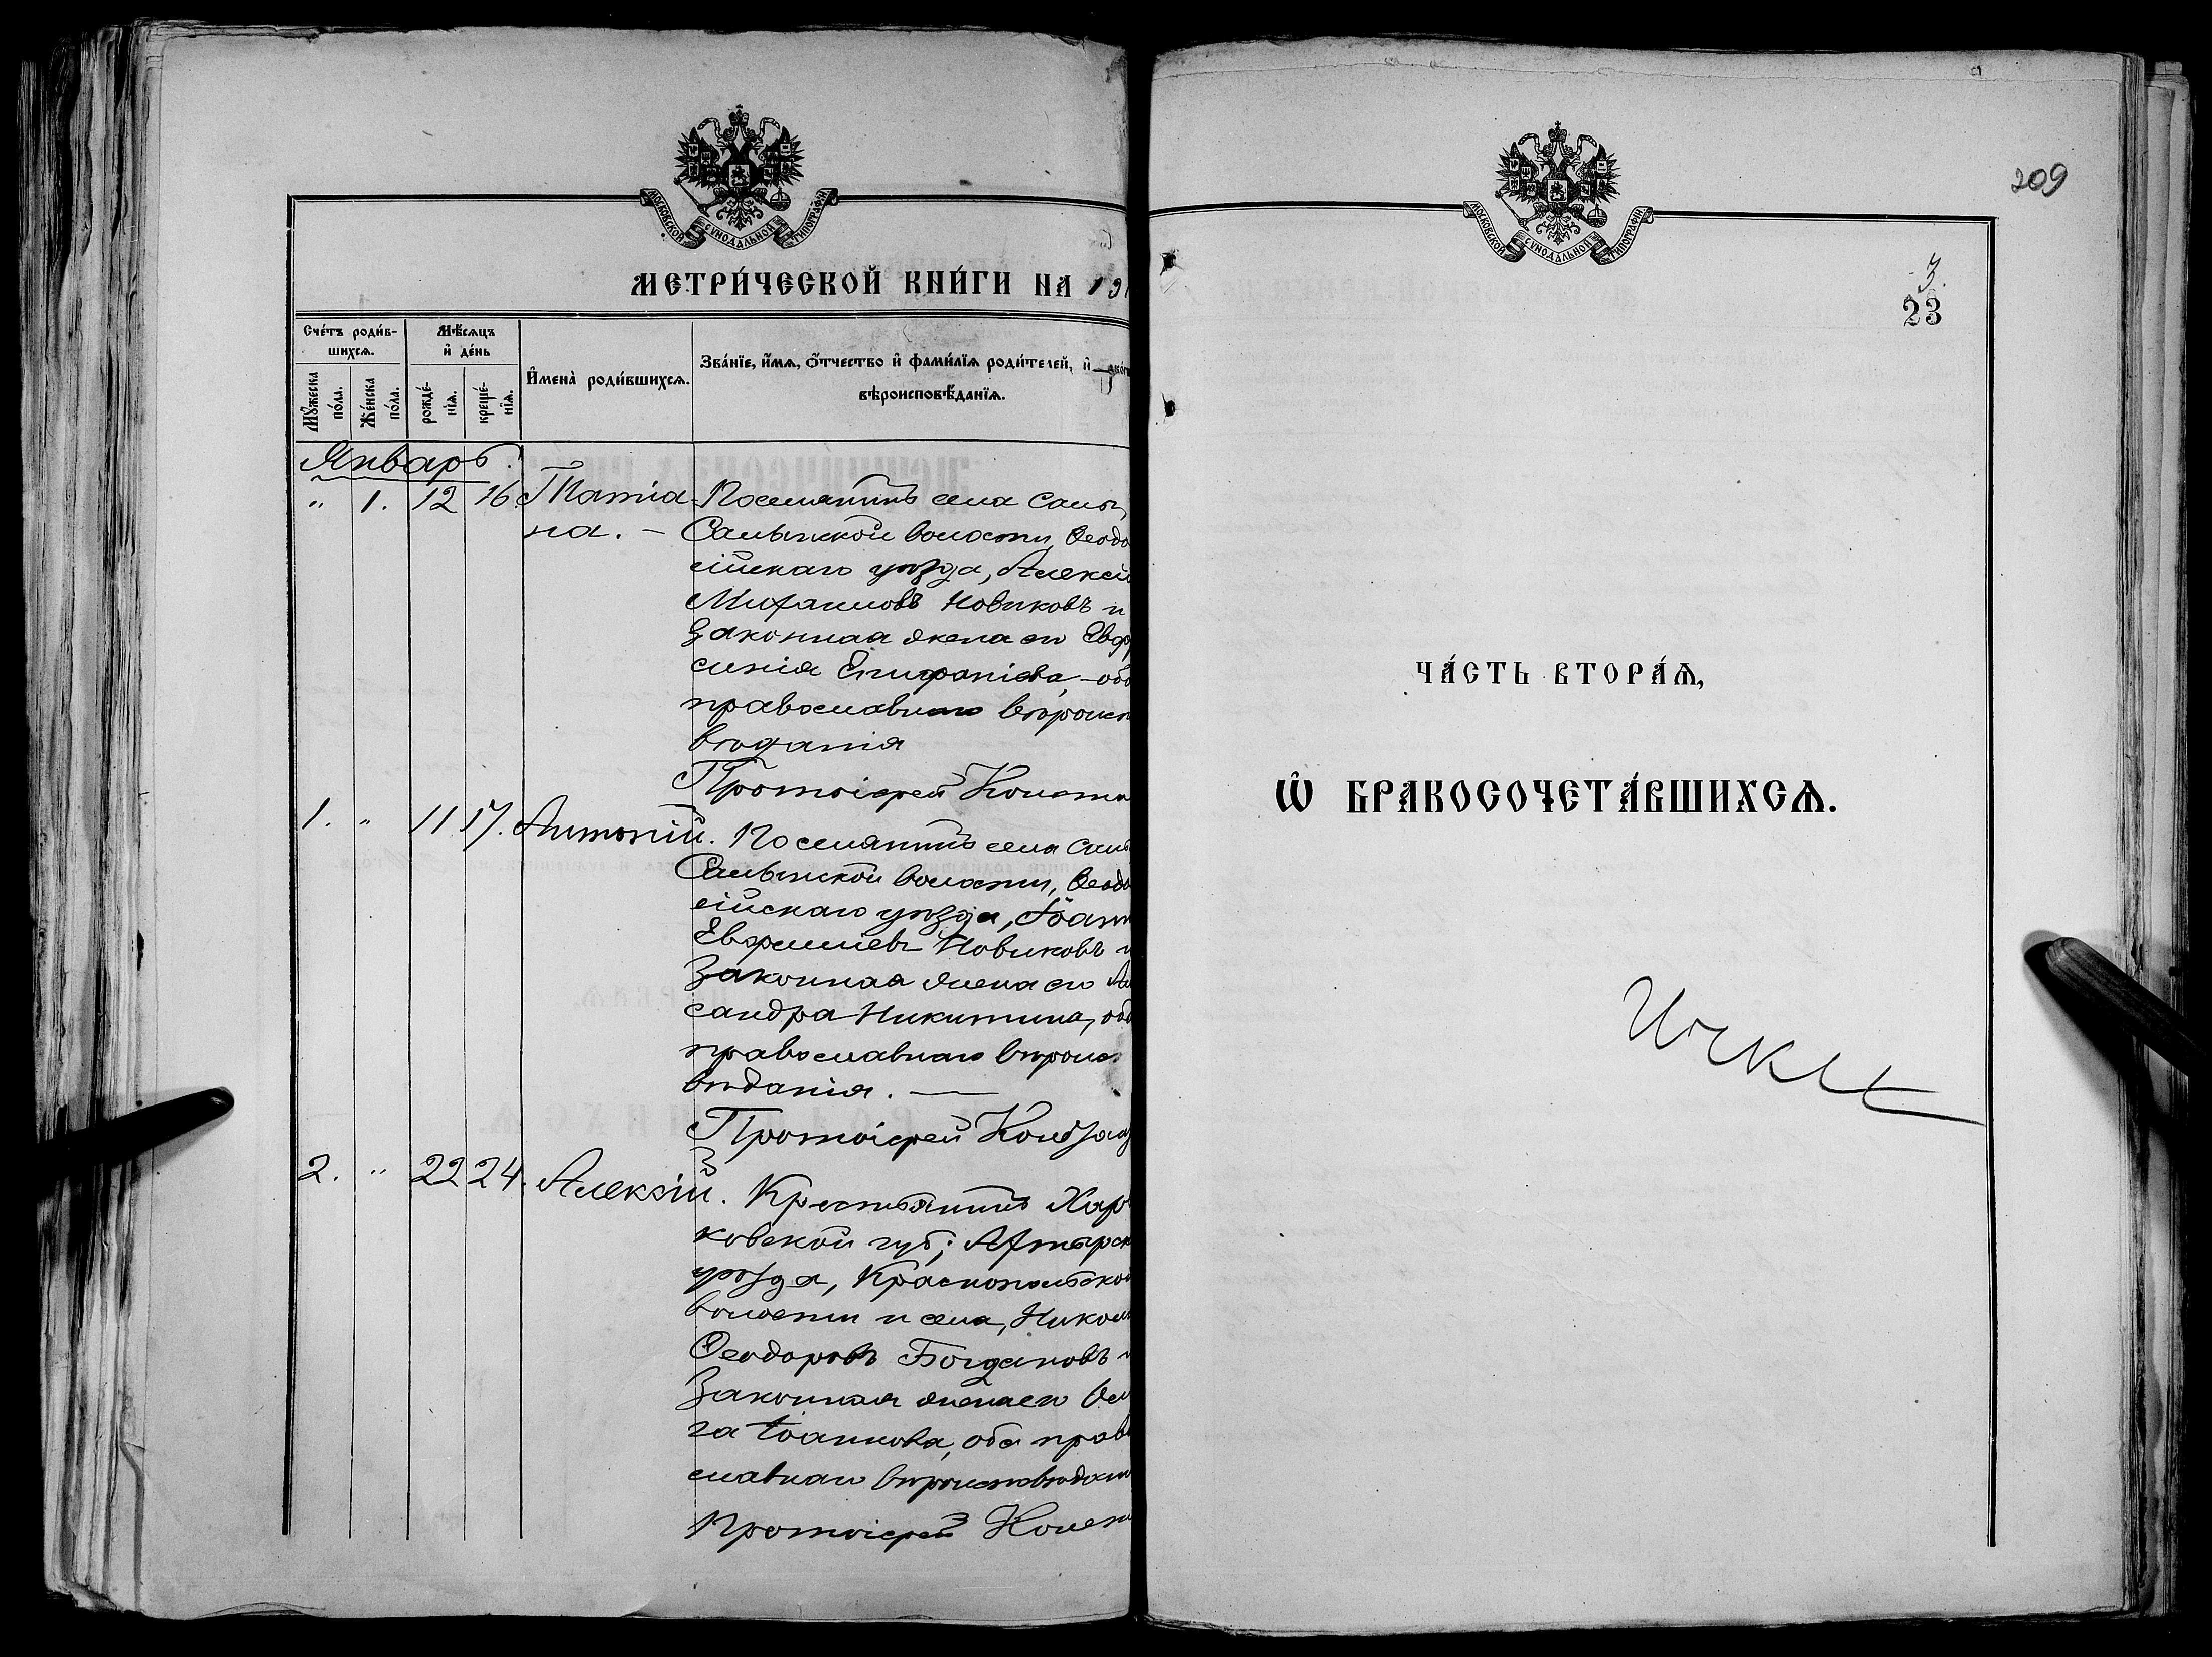 МОСКОВСКОЙ СѴНОДАЛЬНОЙ ТИПОГРАФІИ.
МЕТРИ́ЧЕСКОЙ КНИ́ГИ НА 191
Сче́тъ роди́в-
шихсѧ.
Мꙋ́жеска
по́ла.
Же́нска
по́ла.
Мѣ́сѧцъ
и҆ де́нь
рожде́-
нїѧ.
креще́-
нїѧ.
И҆мена̀ роди́вшихсѧ.
Зва́нїе, и҆́мѧ, ѻ҆́тчество и҆ фами́лїѧ роди́телей, и҆
вѣроисповѣ́данїѧ.
Январь.
" 1. 12 16. Татіа- Поселянинъ села Салы,
на. — Салынской волости, Ѳеодо
сійскаго уѣзда, Алексѣй
Михаиловъ Новиковъ и
законная жена его Евфр
синія Епифаніева, — оба
православнаго вѣроисп
вѣданія
Протоіерей
1. " 11 17. Антоній. Поселянинъ села Салы
Салынской волости, Ѳеодо
сійскаго уѣзда, Іоанн
Евфиміевъ Новиковъ и
законная жена его Ал
сандра Никитина, оба
православнаго вѣроис
вѣданія. —
Протоіерей
2. " 22 24. Алексій. Крестьянинъ Харь
ковской губ., Ахтырск
уѣзда, Краснопольской
волости и села, Никол
Ѳеодоровъ Богдановъ и
законная жена его Ол
га Іоаннова, оба прав
славнаго вѣроисповѣдан
Протоіерей
МОСКОВСКОЙ СѴНОДАЛЬНОЙ ТИПОГРАФІИ.
209
3.
23
ЧА́СТЬ ВТОРА́Ѧ,
Ѡ҆ БРАКОСОЧЕТА́ВШИХСѦ.